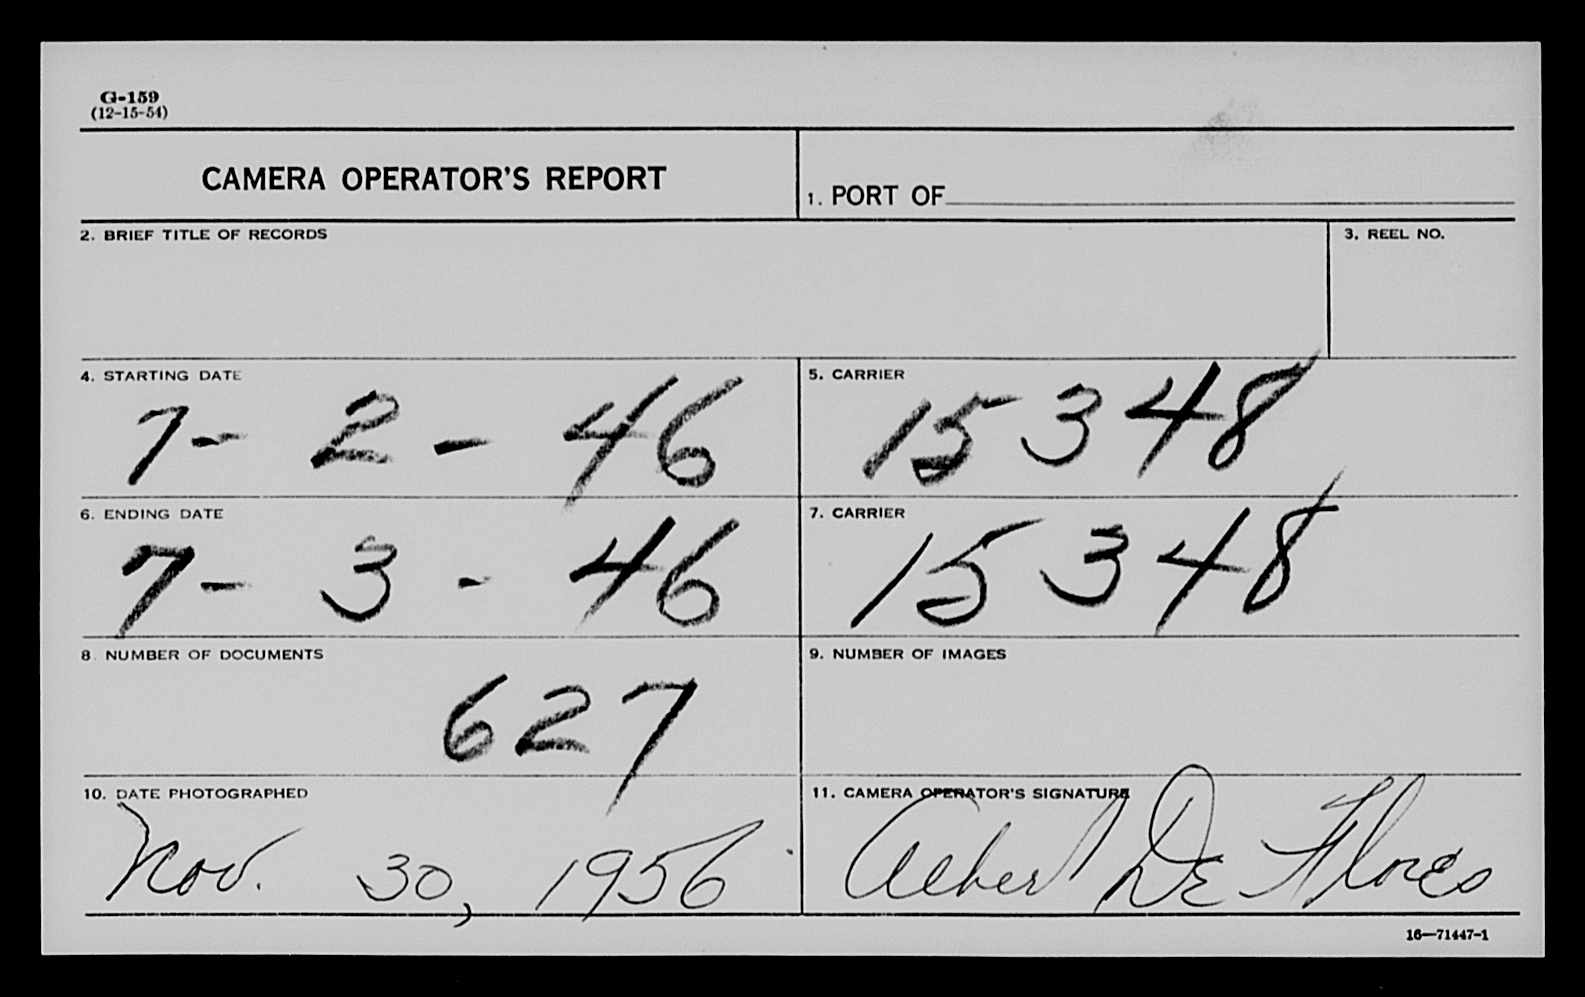 G-159
(12-15-54)
CAMERA OPERATOR'S REPORT
1. PORT OF
2. BRIEF TITLE OF RECORDS
3. REEL NO.
4. STARTING DATE
7- 2 - 46
5. CARRIER
15348
6. ENDING DATE
7- 3 - 46
7. CARRIER
15348
8. NUMBER OF DOCUMENTS
627
9. NUMBER OF IMAGES
10. DATE PHOTOGRAPHED
Nov. 30, 1956
11. CAMERA OPERATOR'S SIGNATURE
Albert De Flores
16—71447-1